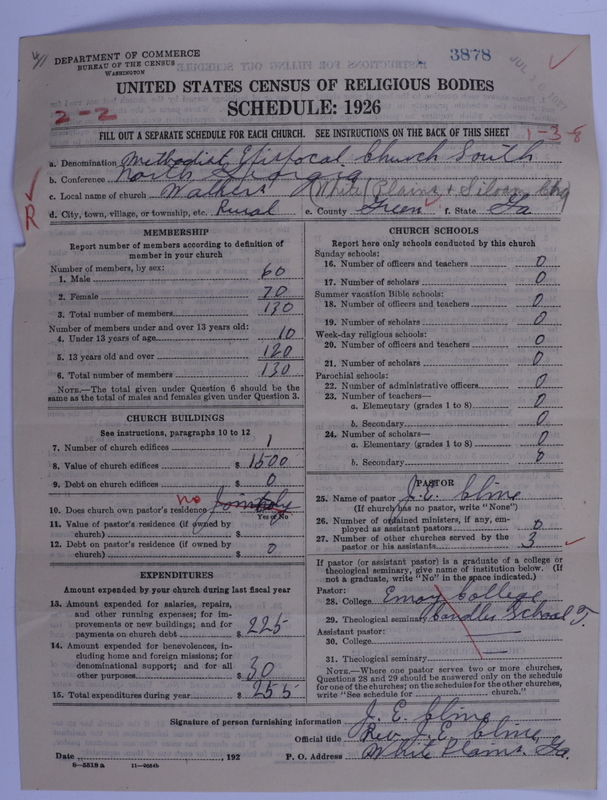 DEPARTMENT OF COMMERCE
BUREAU OF THE CENSUS
WASHINGTON
3878
UNITED STATES CENSUS OF RELIGIOUS BODIES
SCHEDULE: 1926
2-2
FILL OUT A SEPARATE SCHEDULE FOR EACH CHURCH. SEE INSTRUCTIONS ON THE BACK OF THIS SHEET
1-3-8
a. Denomination Methodist Epispocal Church South
b. Conference North Georgia
c. Local name of church Walkers (White Plains & Siloam Chg
d. City, town, village, or township, etc. Rural e. County Green f. State Ga
R
MEMBERSHIP
Report number of members according to definition of member in your church
Number of members, by sex:
1. Male 60
2. Female 70
3. Total number of members 130
Number of members under and over 13 years old:
4. Under 13 years of age 10
5. 13 years old and over 120
6. Total number of members 130
NOTE.—The total given under Question 6 should be the same as the total of males and females given under Question 3.
CHURCH BUILDINGS
See instructions, paragraphs 10 to 12
7. Number of church edifices 1
8. Value of church edifices $ 1500
9. Debt on church edifices $ 0
10. Does church own pastor's residence no Jointly
Yes or No
11. Value of pastor's residence (if owned by church) $
12. Debt on pastor's residence (if owned by church) $ 0
EXPENDITURES
Amount expended by your church during last fiscal year
13. Amount expended for salaries, repairs, and other running expenses; for improvements or new buildings; and for payments on church debt $ 225
14. Amount expended for benevolences, including home and foreign missions; for denominational support; and for all other purposes $ 30
15. Total expenditures during year $ 255
CHURCH SCHOOLS
Report here only schools conducted by this church
Sunday schools:
16. Number of officers and teachers 0
17. Number of scholars 0
Summer vacation Bible schools:
18. Number of officers and teachers 0
19. Number of scholars 0
Week-day religious schools:
20. Number of officers and teachers 0
21. Number of scholars 0
Parochial schools:
22. Number of administrative officers 0
23. Number of teachers—
a. Elementary (grades 1 to 8) 0
b. Secondary 0
24. Number of scholars—
a. Elementary (grades 1 to 8) 0
b. Secondary 0
PASTOR
25. Name of pastor J. E. Cline
(If church has no pastor, write "None")
26. Number of ordained ministers, if any, employed as assistant pastors 0
27. Number of other churches served by the pastor or his assistants 3
If pastor (or assistant pastor) is a graduate of a college or theological seminary, give name of institution below. (If not a graduate, write "No" in the space indicated.)
Pastor:
28. College Emory College
29. Theological seminary Candler School T.
Assistant pastor:
30. College
31. Theological seminary
NOTE.—Where one pastor serves two or more churches, Questions 28 and 29 should be answered only on the schedule for one of the churches; on the schedules for the other churches, write "See schedule for church."
Signature of person furnishing information J. E. Cline
Official title Rev. J. E. Cline
Date , 192 P. O. Address White Plains, Ga.
8—5518 a 11—9584b